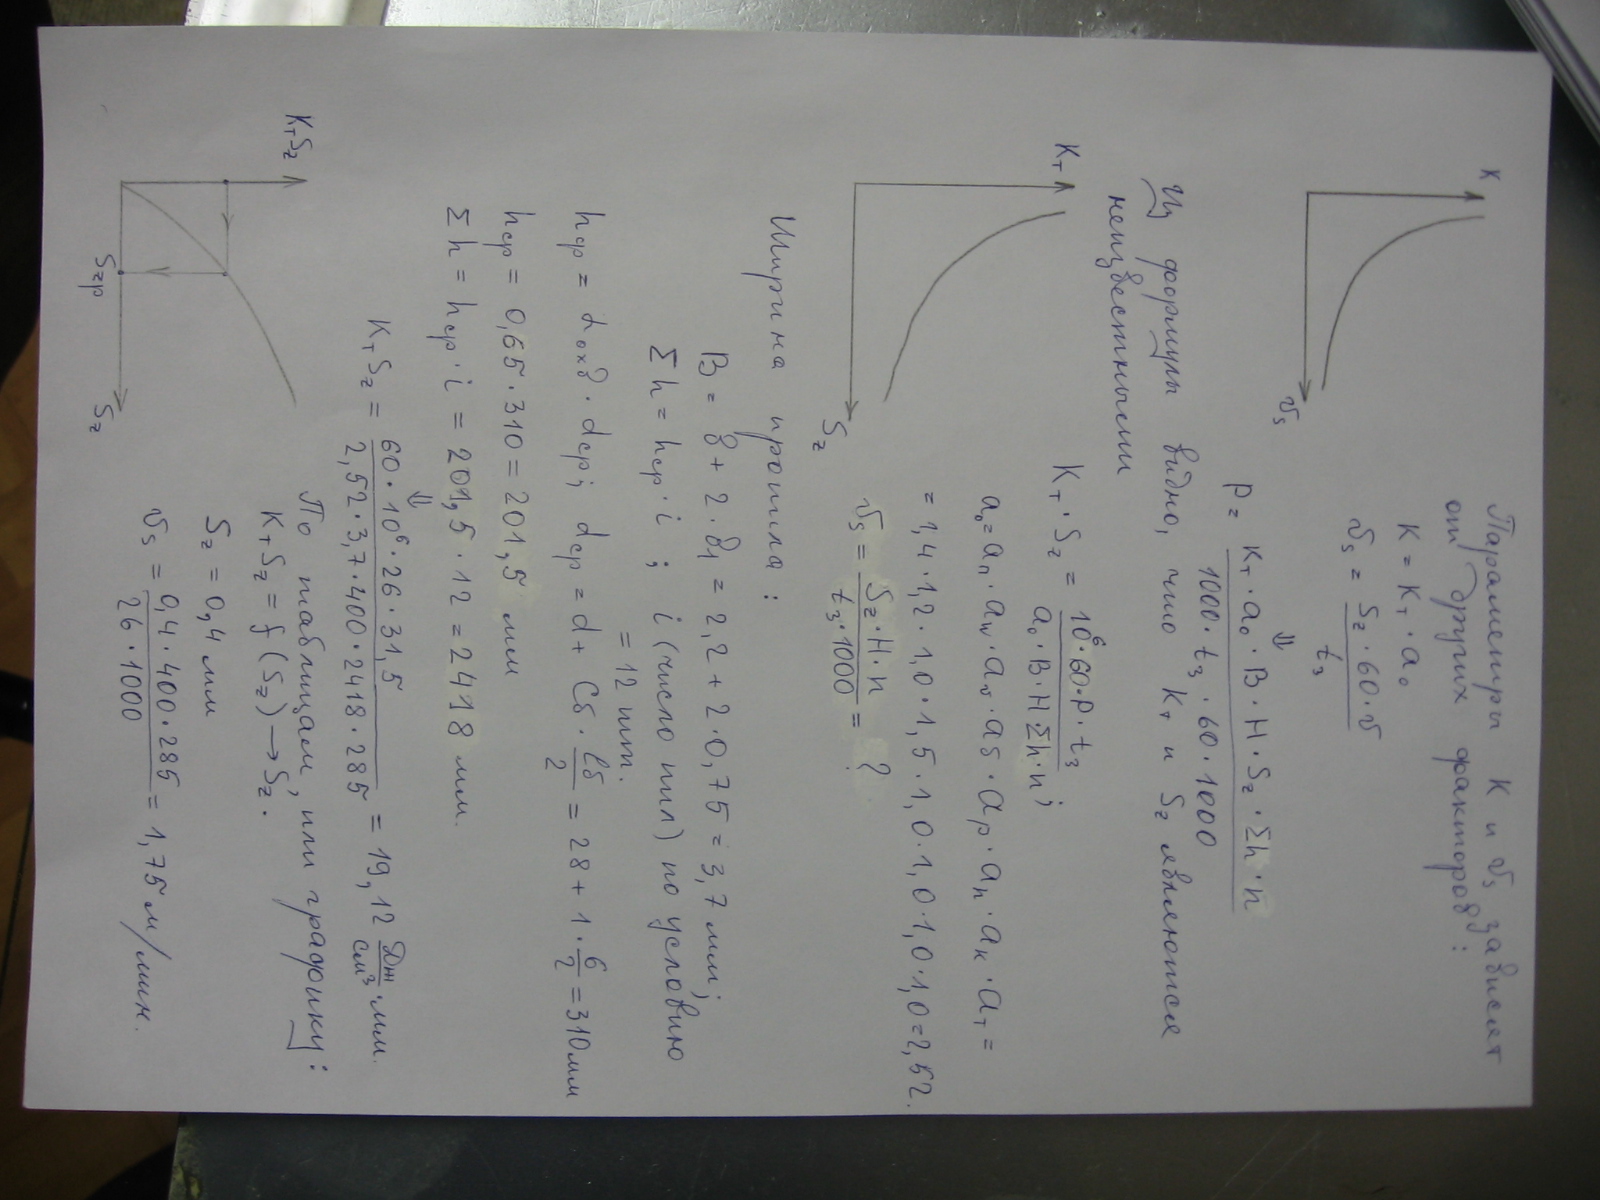 Параметры K и υₛ зависят
от других факторов:
K
υₛ
K = Kт · a₀
υₛ = Sz · 60 · υ / tз
P = Kт · a₀ · B · H · Sz · Σh · n / 1000 · tз · 60 · 1000
⇓
Из формулы видно, что Kт и Sz являются
неизвестными
Kт · Sz = 10⁶ · 60 · P · tз / a₀ · B · H Σh · n ;
Kт
Sz
a₀ = aп · aw · aυ · aδ · aρ · ah · aк · aт =
= 1,4 · 1,2 · 1,0 · 1,5 · 1,0 · 1,0 · 1,0 · 1,0 = 2,52.
υₛ = Sz · H · n / tз · 1000 = ?
Ширина пропила:
B = в + 2 · в₁ = 2,2 + 2 · 0,75 = 3,7 мм;
Σh = hср · i ; i (число пил) по условию
= 12 шт.
hср = αохв · dср; dср = d + Cδ · lб / 2 = 28 + 1 · 6 / 2 = 310 мм
hср = 0,65 · 310 = 201,5 мм
Σh = hср · i = 201,5 · 12 = 2418 мм.
⇓
KтSz = 60 · 10⁶ · 26 · 31,5 / 2,52 · 3,7 · 400 · 2418 · 285 = 19,12 Дж/см³ · мм.
По таблицам, или графику:
KтSz = f (Sz) → Sz.
KтSz
Szφ
Sz
Sz = 0,4 мм
υₛ = 0,4 · 400 · 285 / 26 · 1000 = 1,75 м/мин.